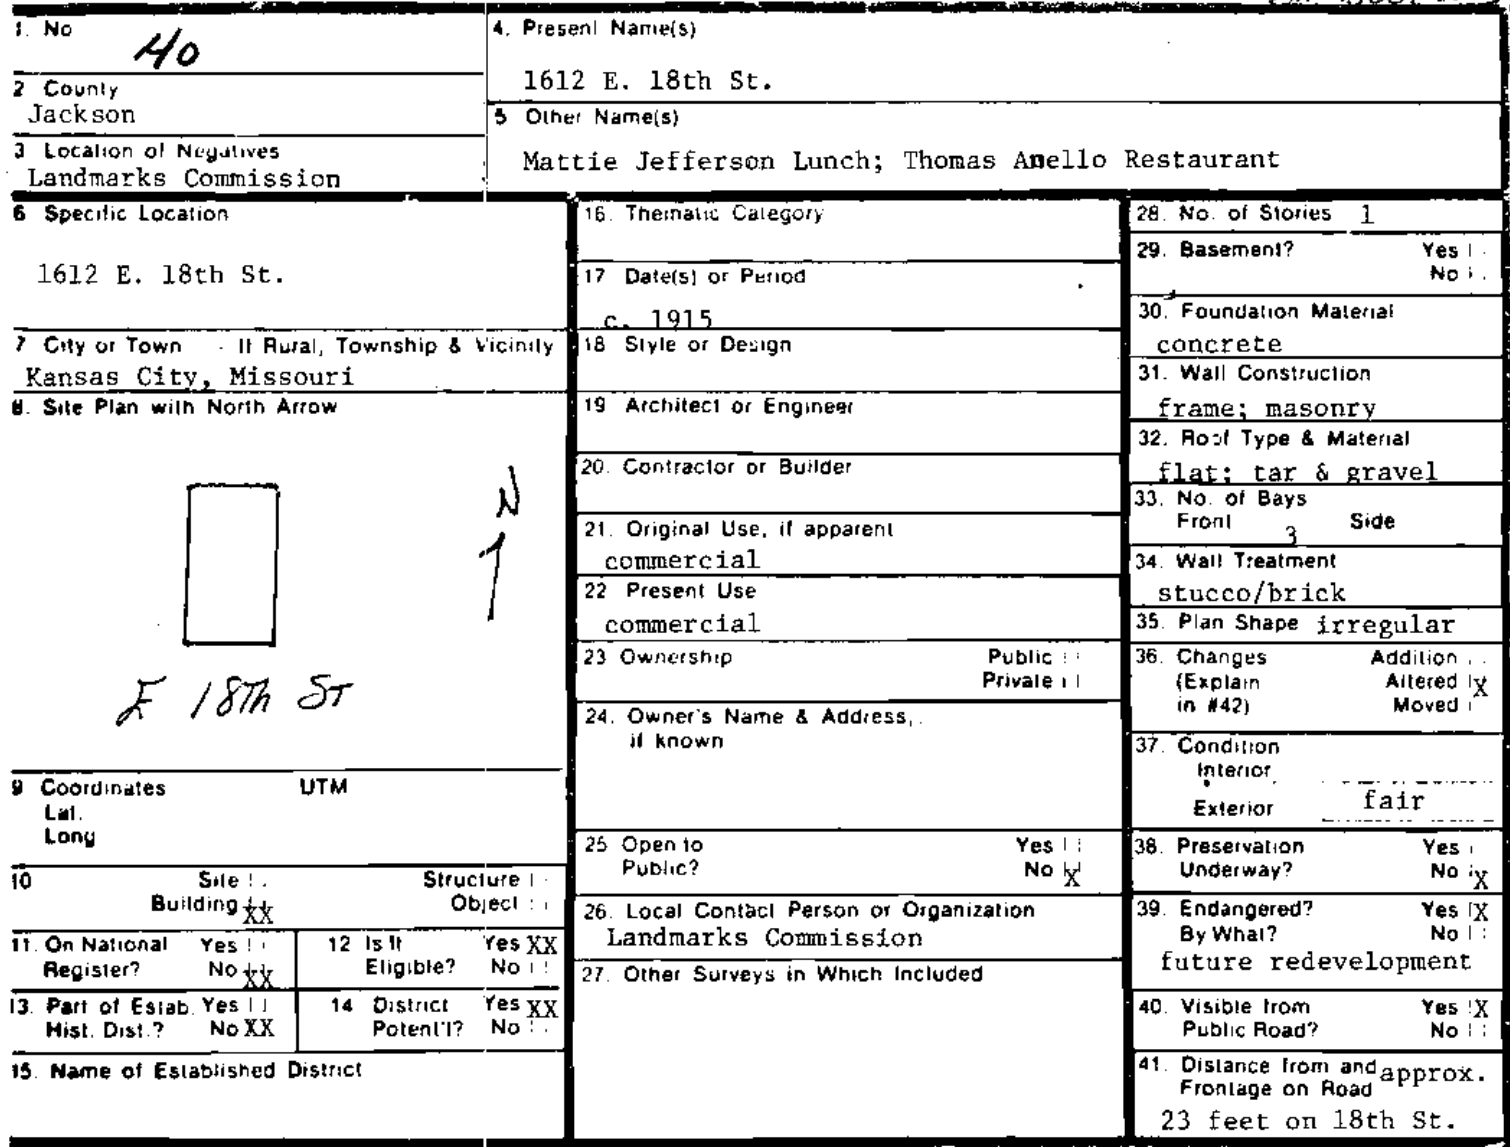 1. No
40
2 County
Jackson
3 Location of Negatives
Landmarks Commission
4. Present Name(s)
1612 E. 18th St.
5 Other Name(s)
Mattie Jefferson Lunch; Thomas Anello Restaurant
6 Specific Location
1612 E. 18th St.
7 City or Town If Rural, Township & Vicinity
Kansas City, Missouri
8. Site Plan with North Arrow
N
E 18Th ST
9 Coordinates UTM
Lat.
Long
10 Site Structure
Building XX Object
11. On National Yes
Register? No XX
12 Is It Yes XX
Eligible? No
13. Part of Estab. Yes
Hist. Dist.? No XX
14 District Yes XX
Potent'l? No
15. Name of Established District
16. Thematic Category
17 Date(s) or Period
c. 1915
18 Style or Design
19 Architect or Engineer
20. Contractor or Builder
21. Original Use, if apparent
commercial
22 Present Use
commercial
23 Ownership Public
Private
24. Owner's Name & Address,
if known
25 Open to Yes
Public? No X
26. Local Contact Person or Organization
Landmarks Commission
27. Other Surveys in Which Included
28. No. of Stories 1
29. Basement? Yes
No
30. Foundation Material
concrete
31. Wall Construction
frame; masonry
32. Roof Type & Material
flat; tar & gravel
33. No. of Bays
Front 3 Side
34. Wall Treatment
stucco/brick
35. Plan Shape irregular
36. Changes Addition
(Explain Altered X
in #42) Moved
37. Condition
Interior
Exterior fair
38. Preservation Yes
Underway? No X
39. Endangered? Yes X
By What? No
future redevelopment
40. Visible from Yes X
Public Road? No
41. Distance from and approx.
Frontage on Road
23 feet on 18th St.